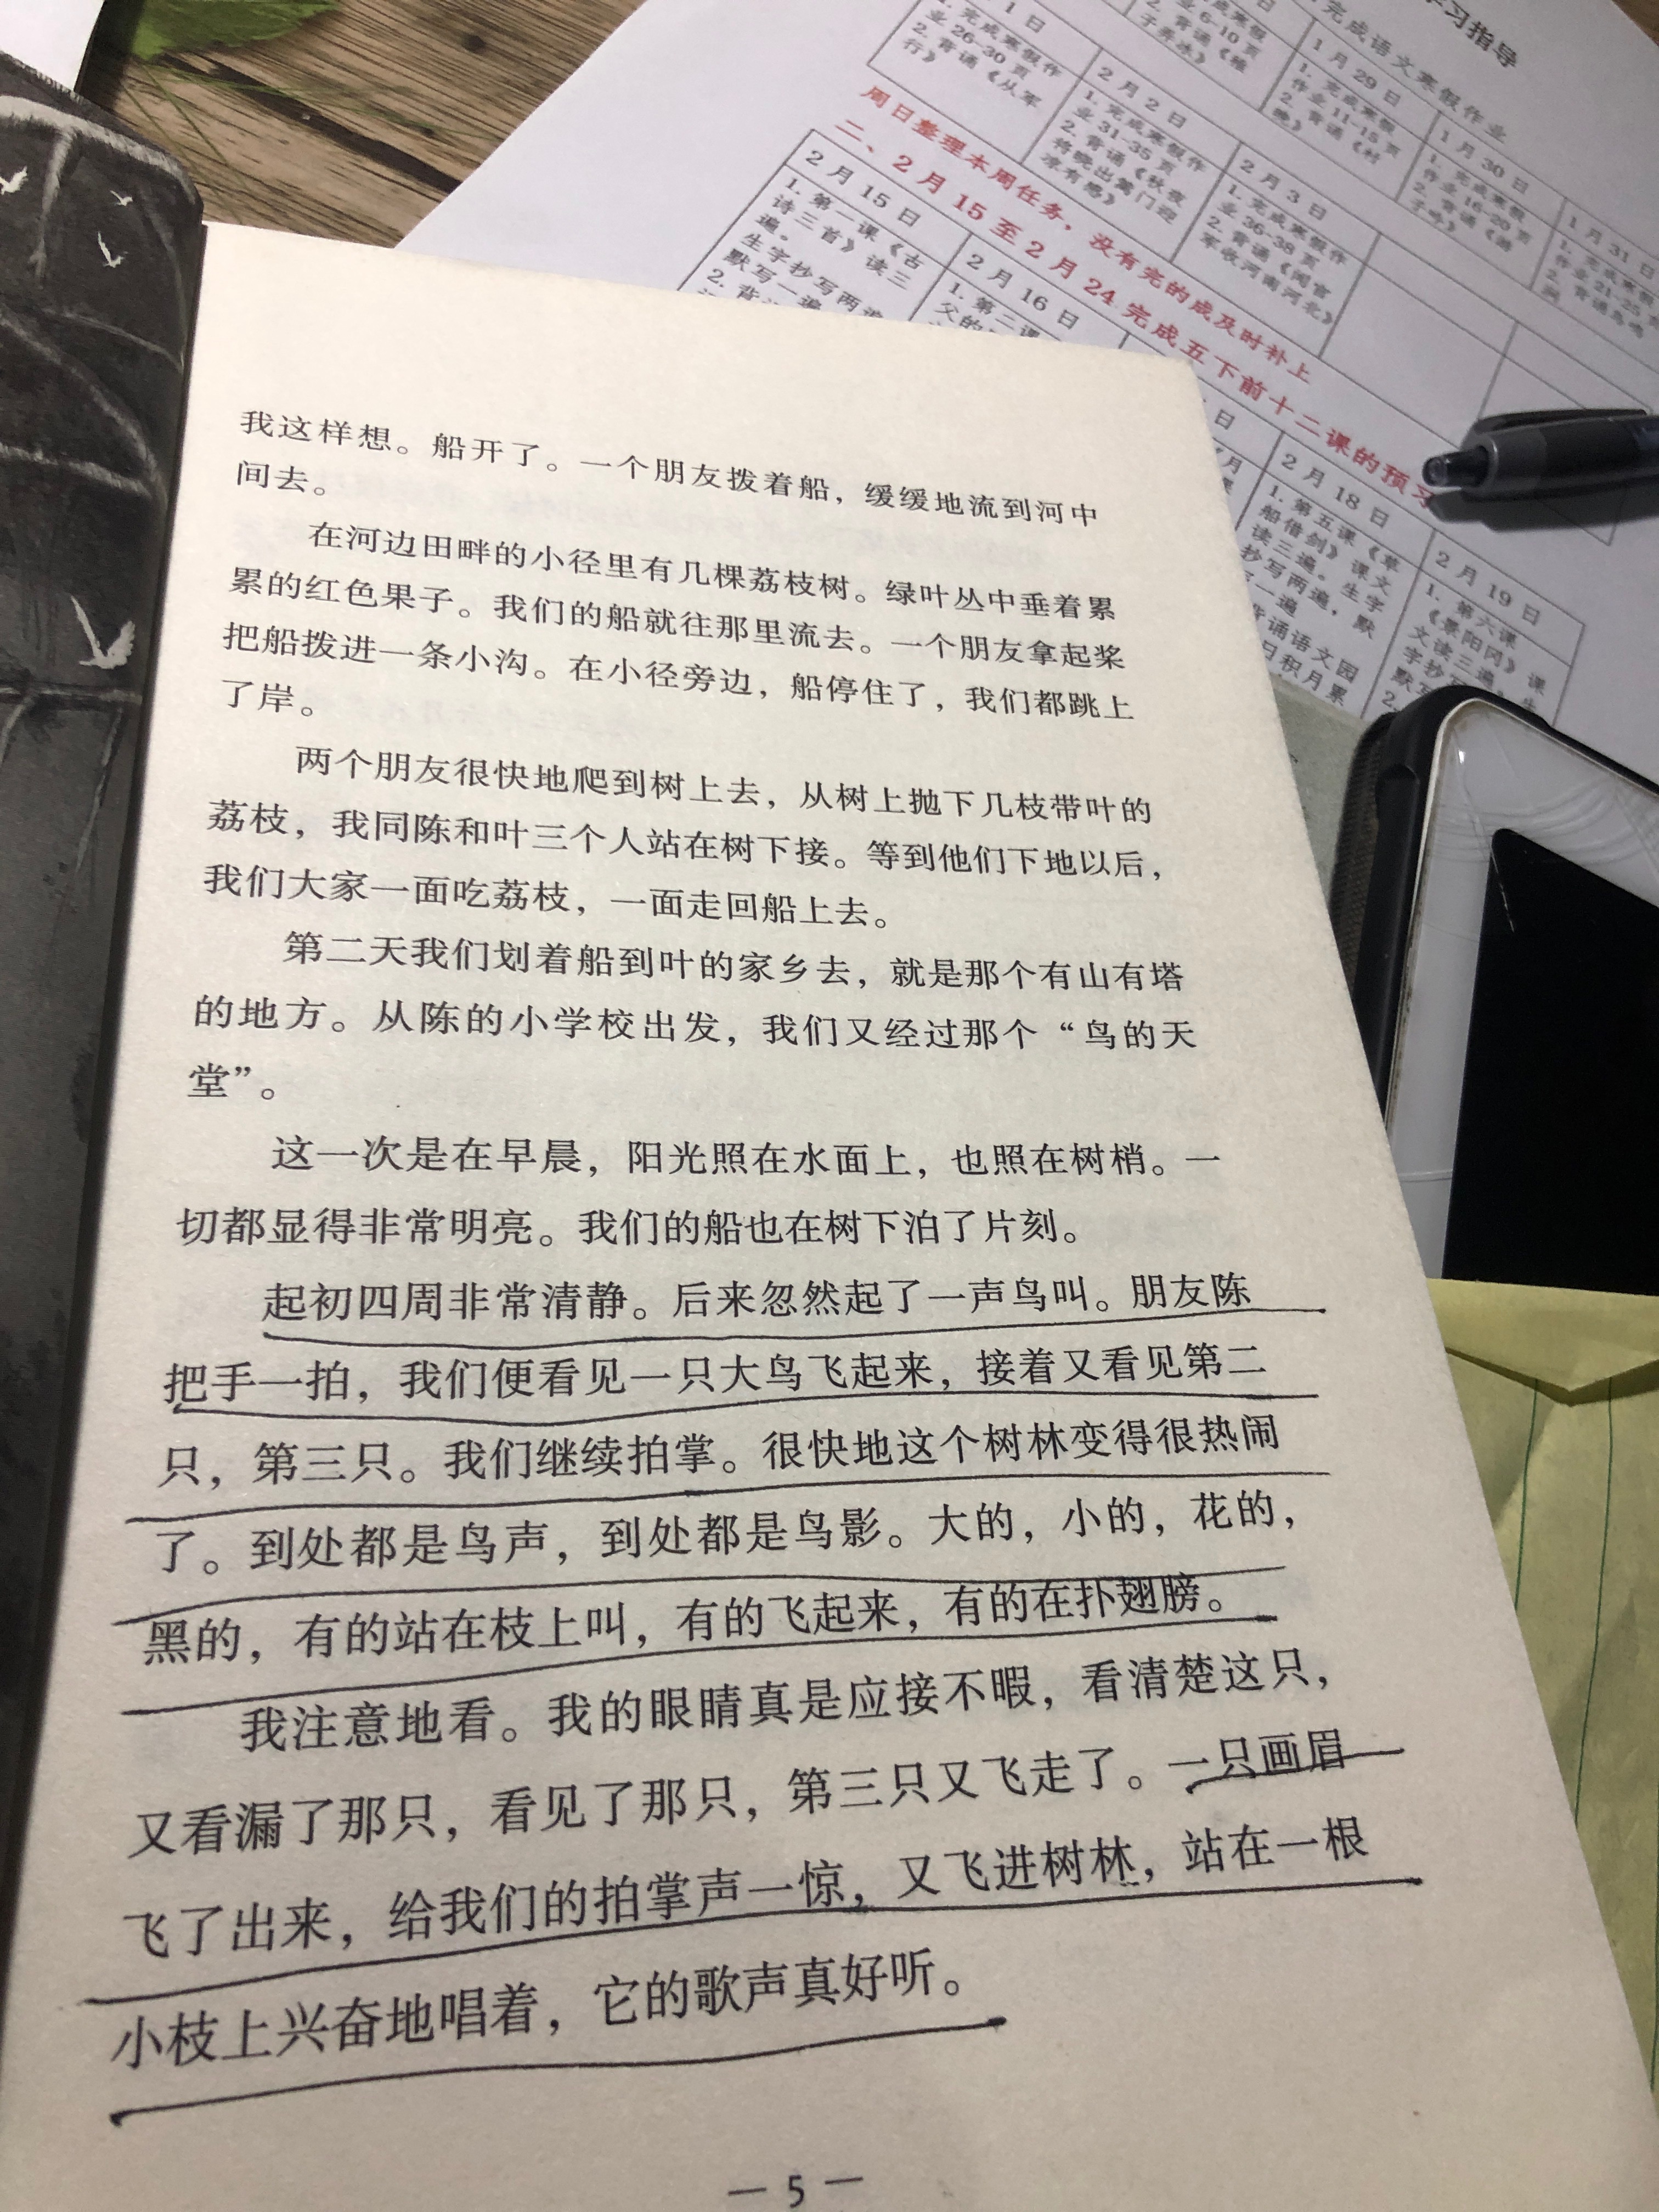 我这样想。船开了。一个朋友拨着船，缓缓地流到河中
间去。
在河边田畔的小径里有几棵荔枝树。绿叶丛中垂着累
累的红色果子。我们的船就往那里流去。一个朋友拿起桨
把船拨进一条小沟。在小径旁边，船停住了，我们都跳上
了岸。
两个朋友很快地爬到树上去，从树上抛下几枝带叶的
荔枝，我同陈和叶三个人站在树下接。等到他们下地以后，
我们大家一面吃荔枝，一面走回船上去。
第二天我们划着船到叶的家乡去，就是那个有山有塔
的地方。从陈的小学校出发，我们又经过那个“鸟的天
堂”。
这一次是在早晨，阳光照在水面上，也照在树梢。一
切都显得非常明亮。我们的船也在树下泊了片刻。
起初四周非常清静。后来忽然起了一声鸟叫。朋友陈
把手一拍，我们便看见一只大鸟飞起来，接着又看见第二
只，第三只。我们继续拍掌。很快地这个树林变得很热闹
了。到处都是鸟声，到处都是鸟影。大的，小的，花的，
黑的，有的站在枝上叫，有的飞起来，有的在扑翅膀。
我注意地看。我的眼睛真是应接不暇，看清楚这只，
又看漏了那只，看见了那只，第三只又飞走了。一只画眉
飞了出来，给我们的拍掌声一惊，又飞进树林，站在一根
小枝上兴奋地唱着，它的歌声真好听。
— 5 —
学习指导
完成语文寒假作业
1月29日
1. 完成寒假
作业11-15页
2. 背诵《村
晚》
1月30日
1. 完成寒假
作业16-20页
2. 背诵《游
子吟》
1月31日
1日
1. 完成寒假作
业26-30页
2. 背诵《从军
行》
2月2日
1. 完成寒假作
业31-35页
2. 背诵《秋夜
将晓出篱门迎
凉有感》
2月3日
1. 完成寒假作
业36-38页
2. 背诵《闻官
军收河南河北》
周日整理本周任务，没有完的成及时补上
二、2月15至2月24完成五下前十二课的预习
2月15日
1. 第一课《古
诗三首》读三
遍。
生字抄写两遍
默写一遍
2月16日
2月18日
1. 第五课《草
船借剑》课文
读三遍。生字
抄写两遍，默
2月19日
1. 第六课
《景阳冈》课
文读三遍，生